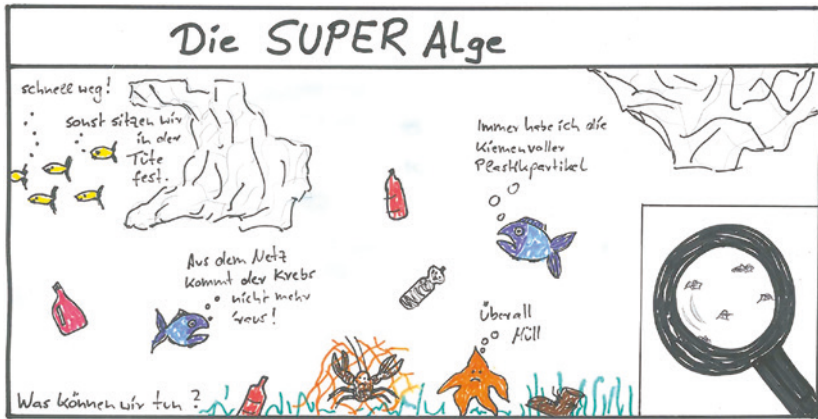 Die SUPER Alge
schnell weg!
sonst sitzen wir
in der
Tüte
fest.
Immer habe ich die
Kiemen voller
Plastikpartikel
Aus dem Netz
kommt der Krebs
nicht mehr
'raus!
Überall
Müll
Was können wir tun?